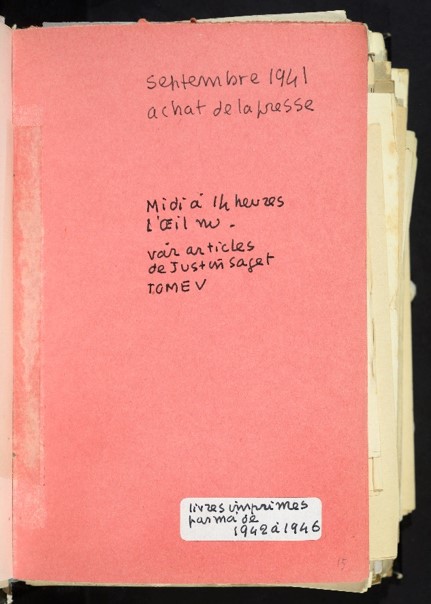 septembre 1941
achat de la presse
Midi à 14 heures
L'Œil nu.
voir articles
de Justin Saget
TOME V
livres imprimés
par ma de
1942 à 1946
15